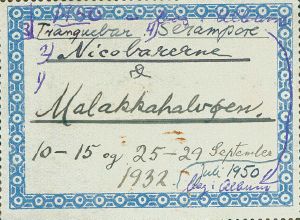 3) Tranquebar 4) Serampore
2) Nicobarerne
1) &
Malakkahalvøen.
10-15 og 25-29 September
1932.
Juli 1950
Album